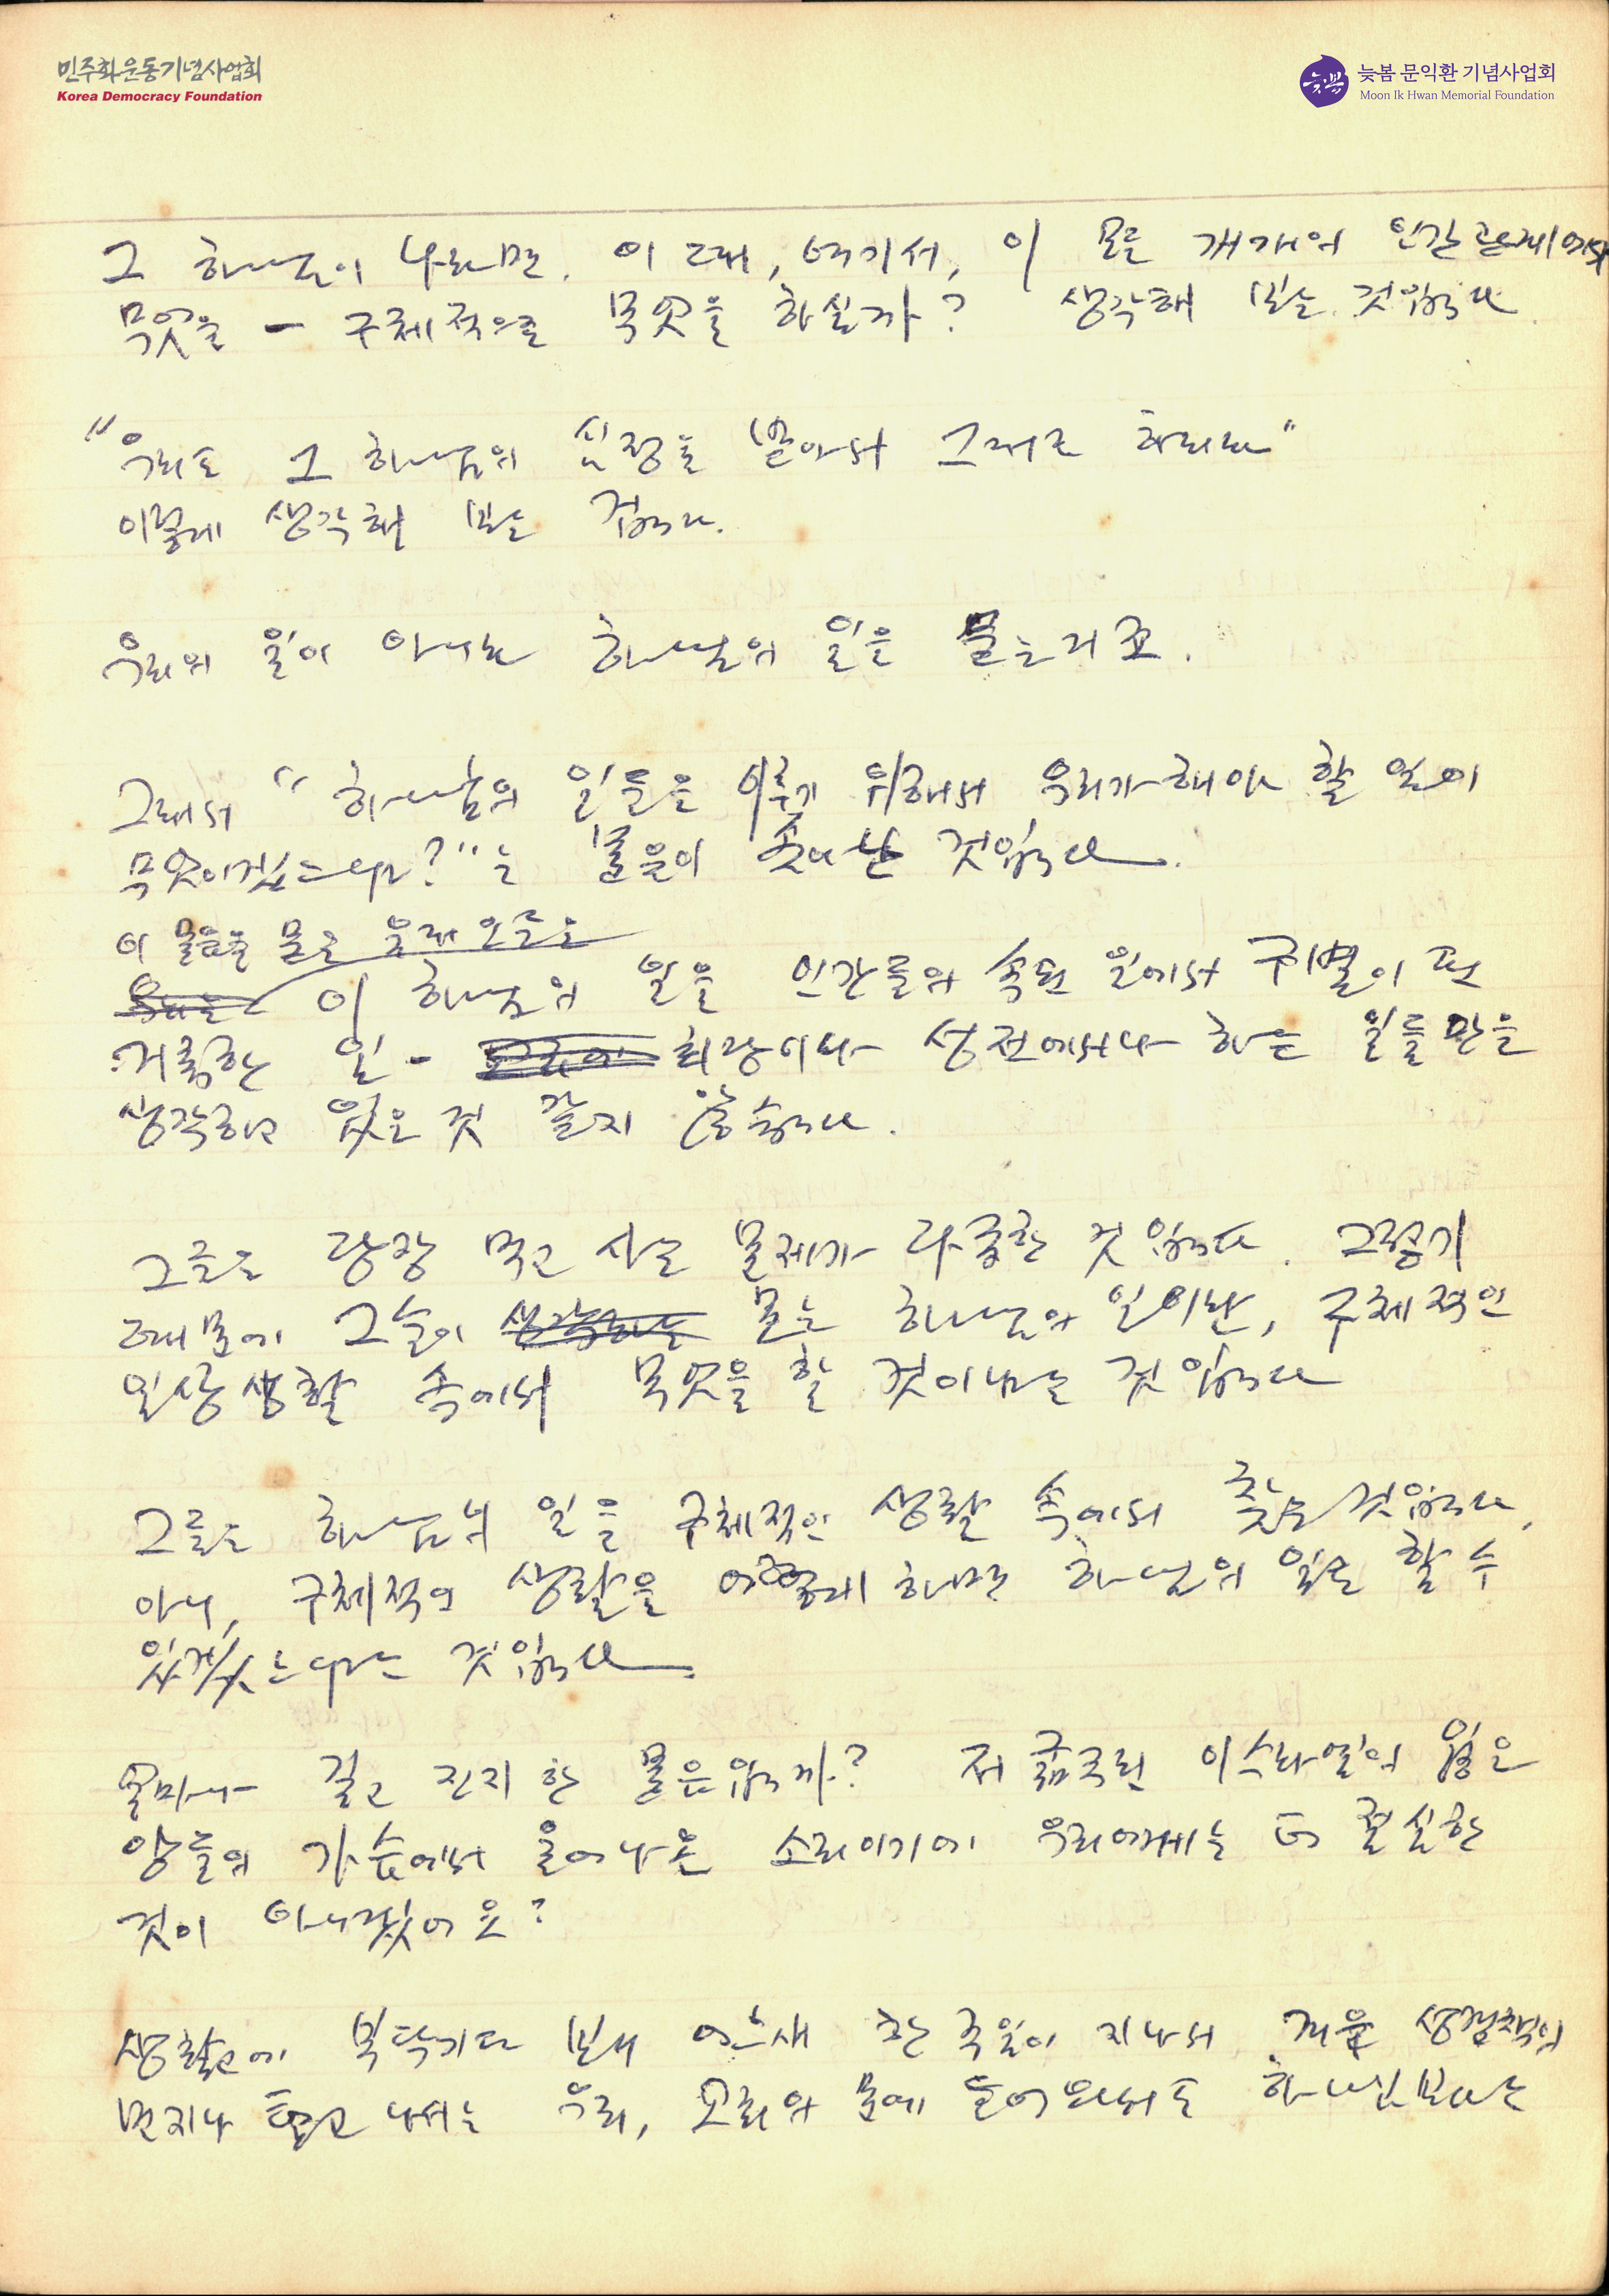 민주화운동기념사업회
Korea Democracy Foundation
늦봄
늦봄 문익환 기념사업회
Moon Ik Hwan Memorial Foundation
그 하나님이 나라면, 이 때, 여기서, 이 모든 개개의 인간관계에서
무엇을 — 구체적으로 무엇을 하실까? 생각해 보는 것입니다.
"우리도 그 하나님의 심정을 받아서 그대로 하리라"
이렇게 생각해 보는 겁니다.
우리의 일이 아니라 하나님의 일을 묻는거죠.
그래서 "하나님의 일들을 이루기 위해서 우리가 해야 할 일이
무엇이겠느냐?"는 물음이 솟아난 것입니다.
이 물음을 물은 옛
이 하나님의 일을 인간들의 속된 일에서 구별이 된
거룩한 일 - 회당이나 성전에서나 하는 일들만을
생각하고 있은 것 같지 않습니다.
그들은 당장 먹고 사는 문제가 다급한 것입니다. 그렇기
때문에 그들이 묻는 하나님의 일이란, 구체적인
일상생활 속에서 무엇을 할 것이냐는 것입니다
그들은 하나님의 일을 구체적인 생활 속에서 찾는 것입니다.
아니, 구체적인 생활을 어떻게 하면 하나님의 일을 할 수
있겠느냐는 것입니다.
얼마나 깊고 진지한 물음입니까? 저 굶주린 이스라엘의 잃은
양들의 가슴에서 울어나온 소리이기에 우리에게는 더 절실한
것이 아니겠어요?
생활고에 복닥기다 보니 어느새 한 주일이 지나서 겨우 성경책의
먼지나 털고 나서는 우리, 교회의 문에 들어와서도 하나님보다는